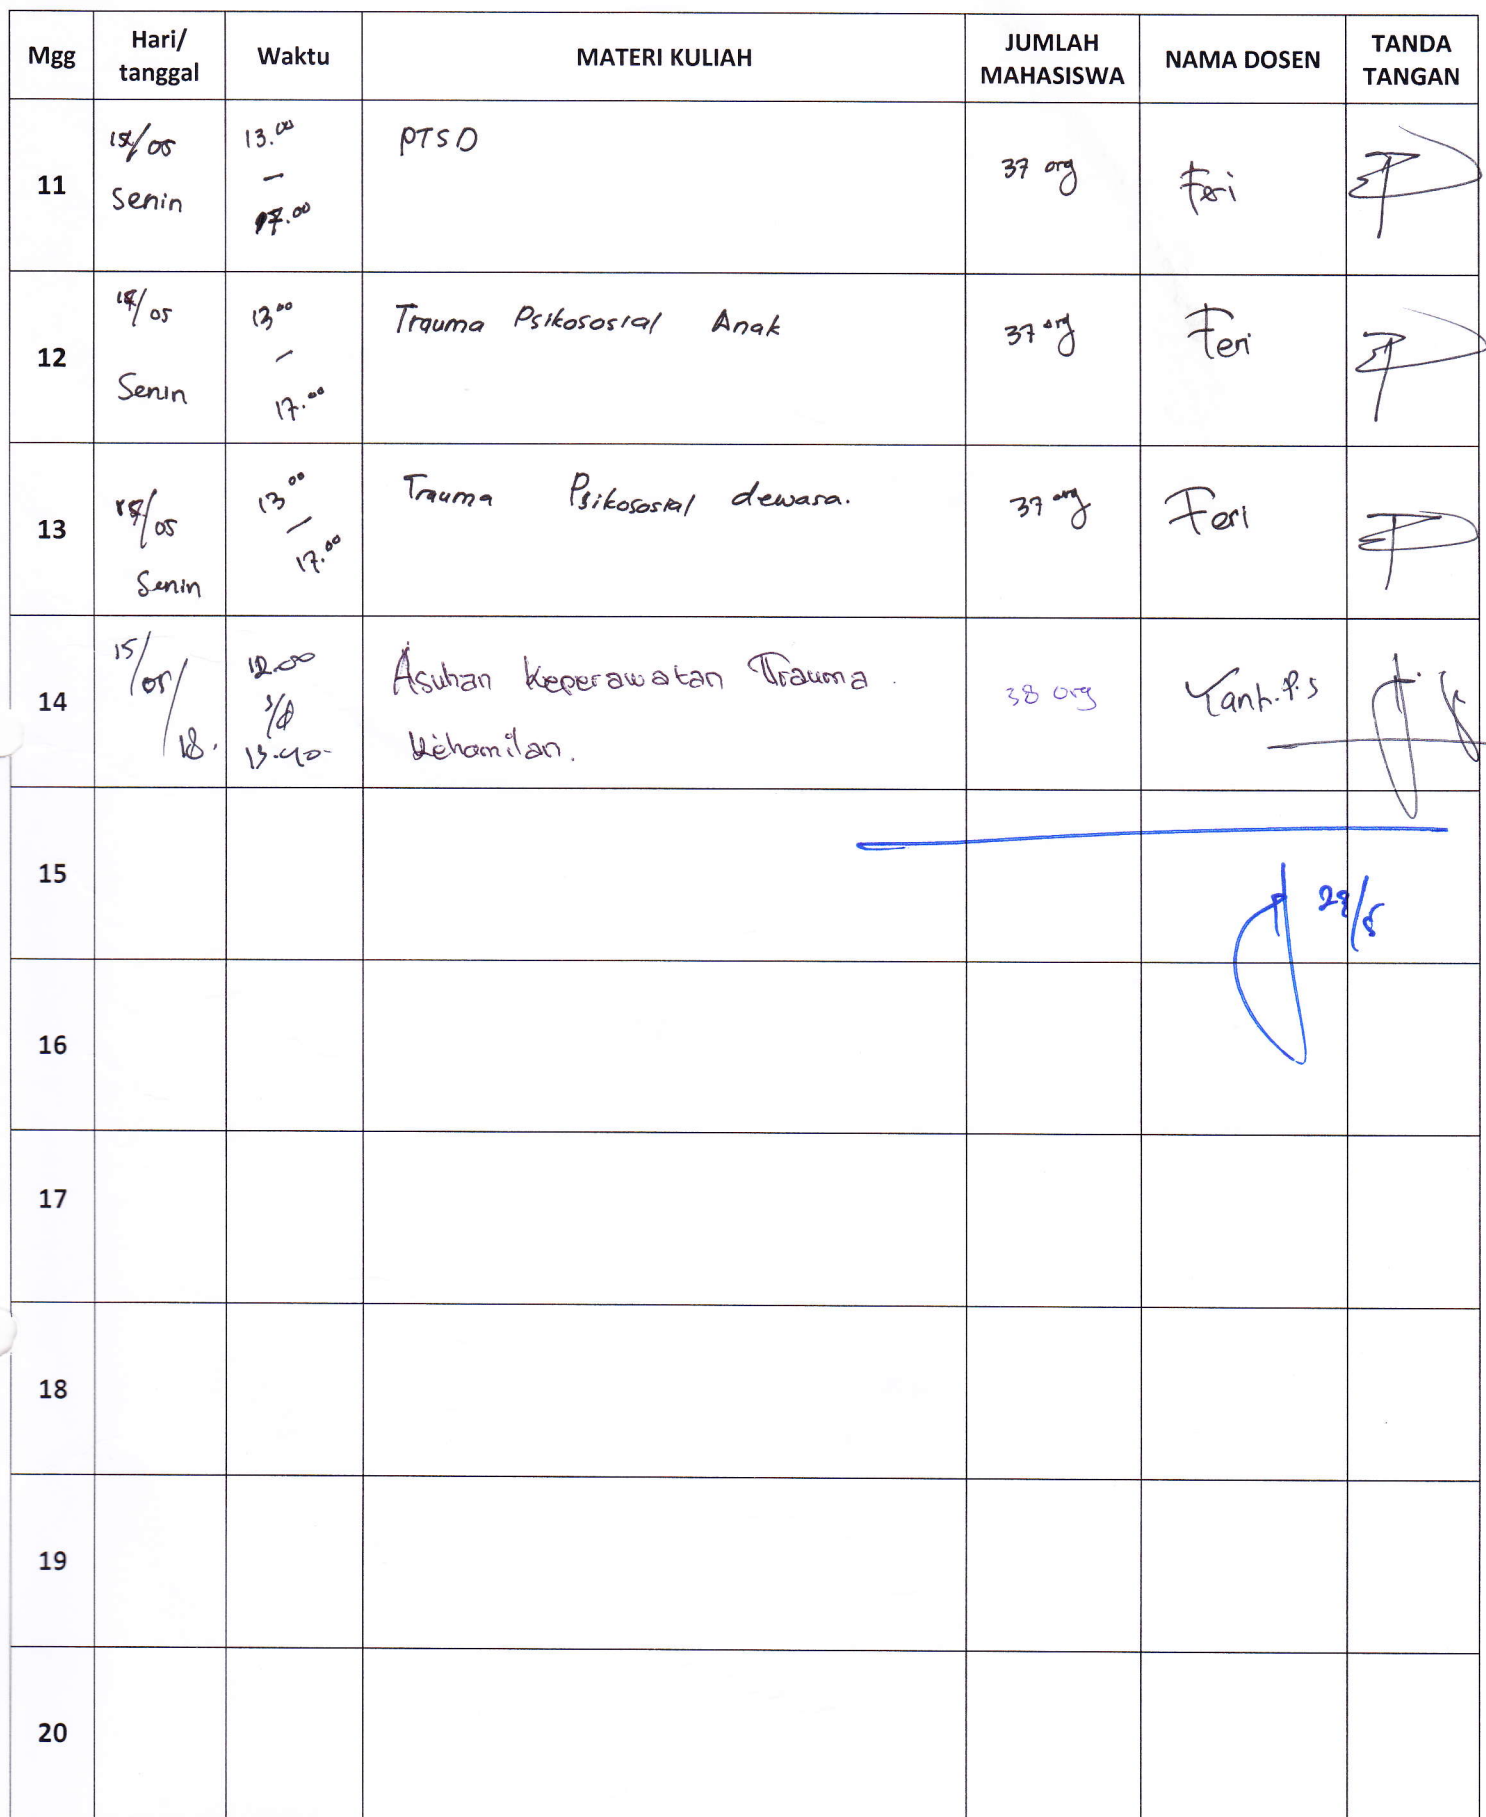 Mgg Hari/ tanggal Waktu MATERI KULIAH JUMLAH MAHASISWA NAMA DOSEN TANDA TANGAN
11 /05 Senin 13.00 – 17.00 PTSD 37 org Feri
12 /05 Senin 13.00 – 17.00 Trauma Psikososial Anak 37 org Feri
13 /05 Senin 13.00 – 17.00 Trauma Psikososial dewasa. 37 org Feri
14 15/05/18. 12.00 s/d 13.40 Asuhan Keperawatan Trauma 38 org
Kehamilan.
15
16
17
18
19
20